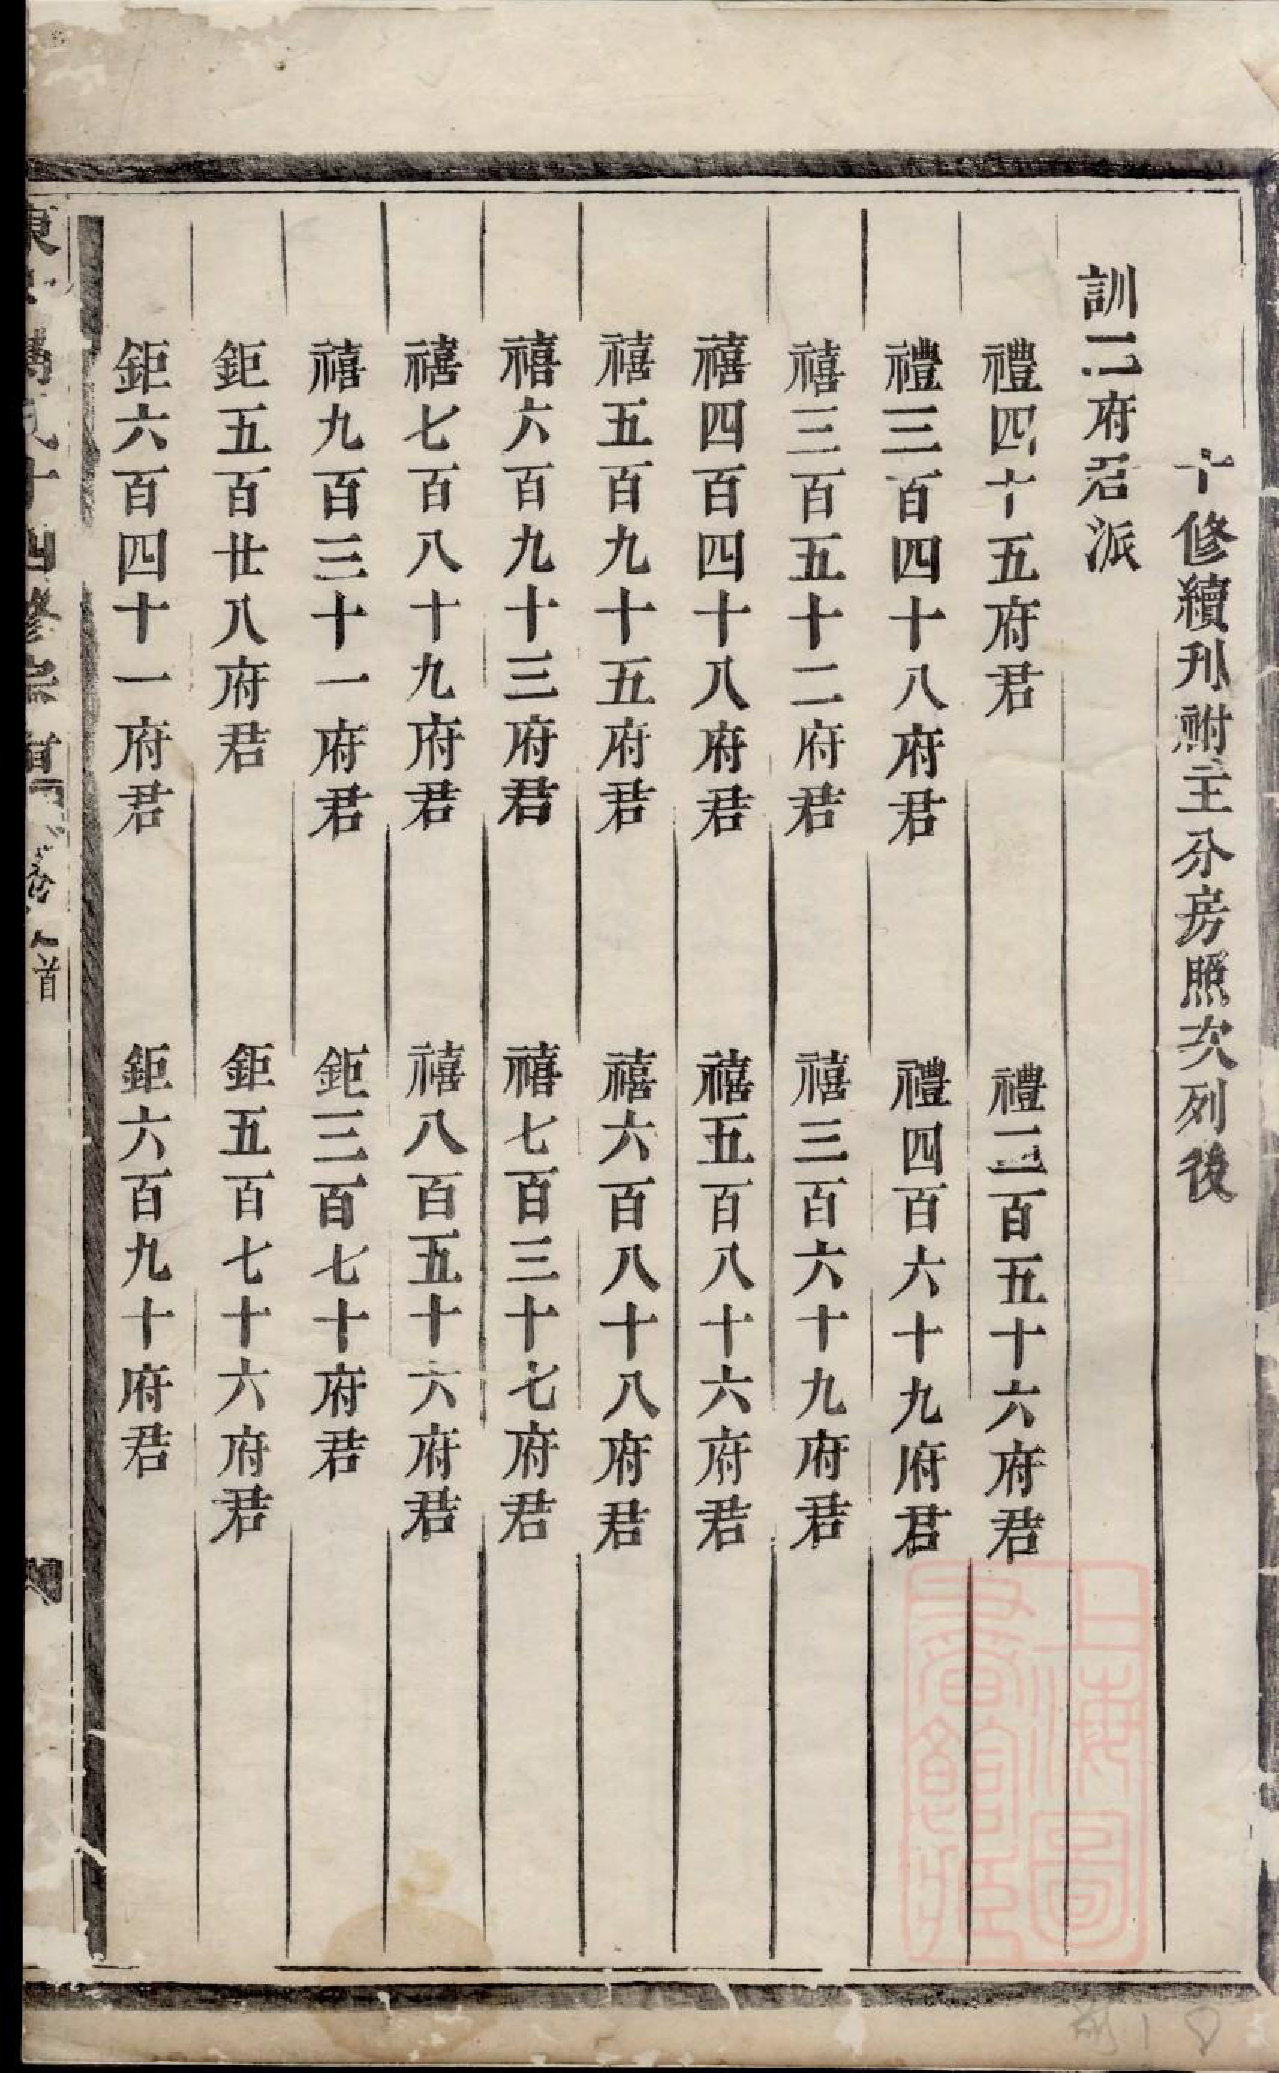 十修續刋祔主分房照次列後
訓二府君派
禮四十五府君
禮二百五十六府君
禮三百四十八府君
禮四百六十九府君
禧三百五十二府君
禧三百六十九府君
禧四百四十八府君
禧五百八十六府君
禧五百九十五府君
禧六百八十八府君
禧六百九十三府君
禧七百三十七府君
禧七百八十九府君
禧八百五十六府君
禧九百三十一府君
鉅三百七十府君
鉅五百廿八府君
鉅五百七十六府君
鉅六百四十一府君
鉅六百九十府君
首
上海圖
書館藏